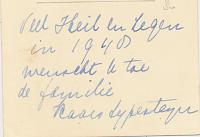 Veel Heil en Zegen
in 1940
wenscht U toe
de familie